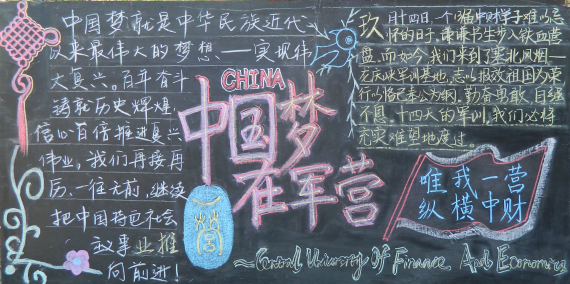 中国梦就是中华民族近代
以来最伟大的梦想——实现伟
大复兴。百年奋斗
铸就历史辉煌,
信心百倍推进复兴
伟业,我们再接再
厉,一往无前,继续
把中国特色社会
事业推
向前进!
CHINA
中国梦
在军营
一营
玖月十四日,一个
怀的日子,
盘。而如今,我们来到了塞北风烟
训基地,志以报效祖国为
行以 为纲。勤奋勇敢,自强
不息,十四天的军训,我们必将
充实 地度过。
唯我一营
纵横中财
~Central University Of Finance And Economics